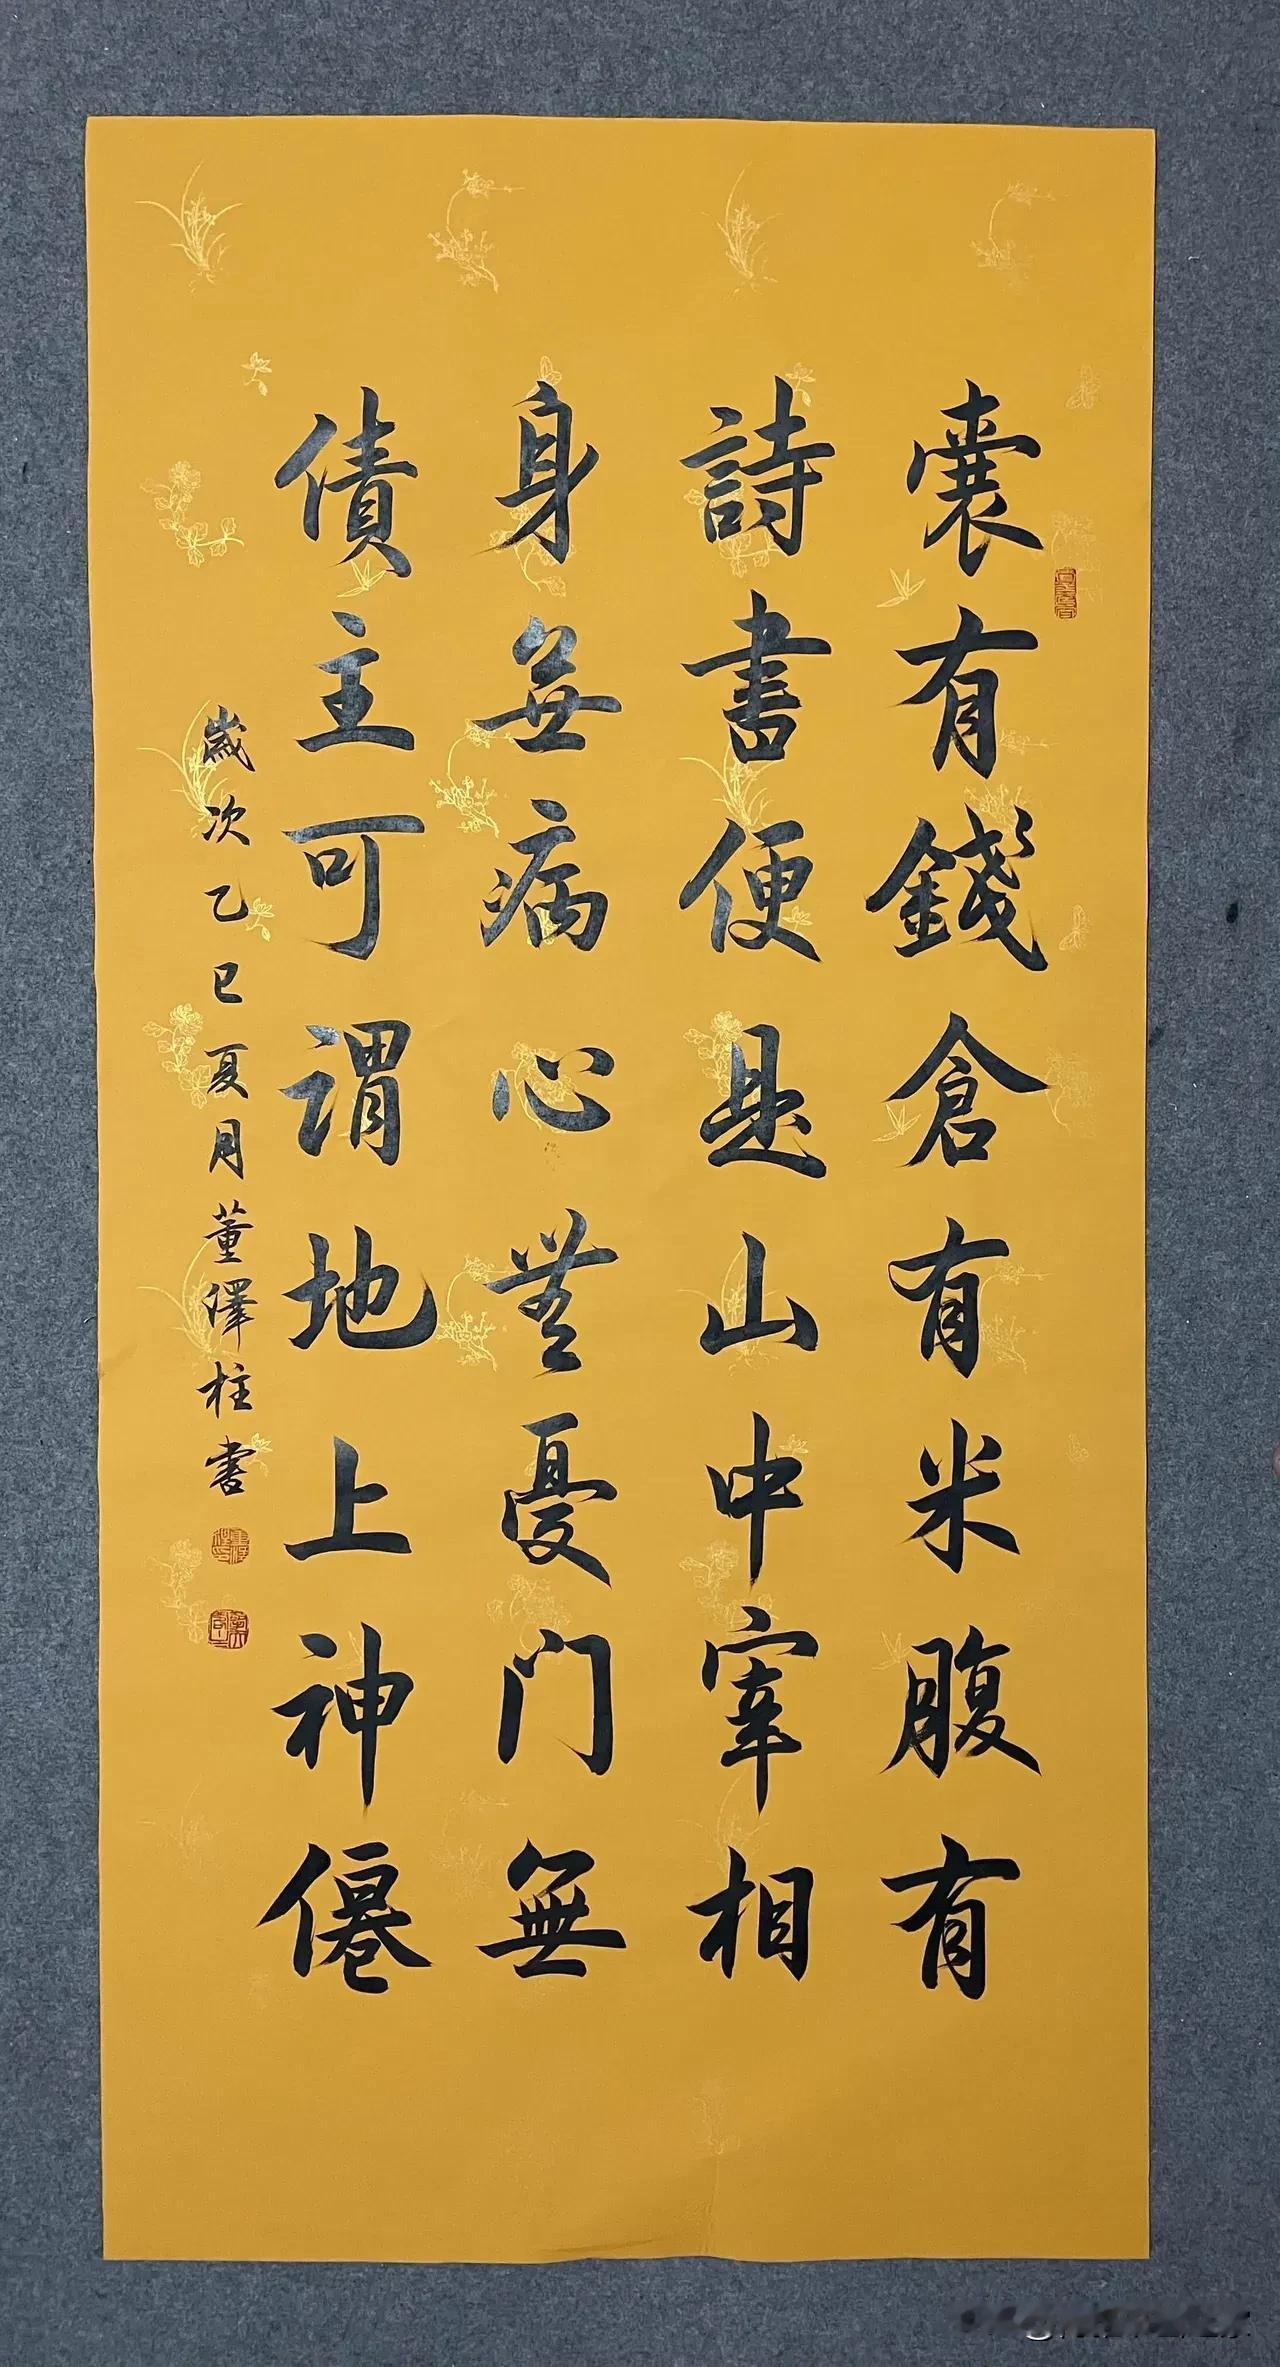 囊有錢倉有米腹有
詩書便是山中宰相
身無病心無憂门無
債主可謂地上神僊
歲次乙巳夏月董澤柱書